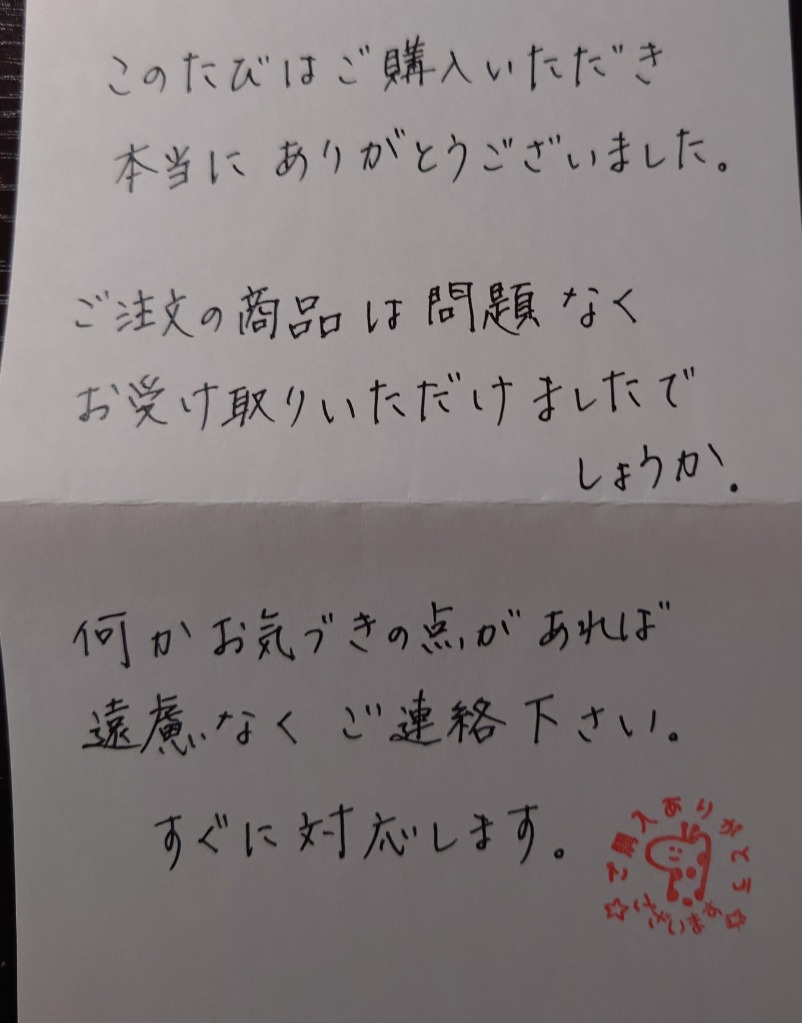 このたびはご購入いただき
本当にありがとうございました。
ご注文の商品は問題なく
お受け取りいただけましたで
しょうか.
何かお気づきの点があれば
遠慮なくご連絡下さい。
すぐに対応します。
ご購入ありがとう
☆ございます☆